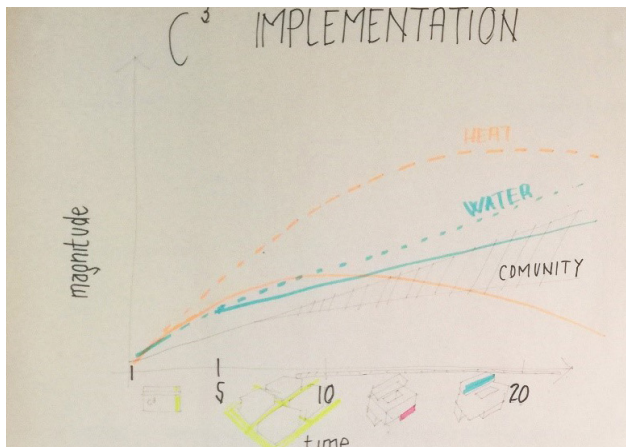 C³ IMPLEMENTATION
HEAT
WATER
COMUNITY
magnitude
1 5 10 20
time